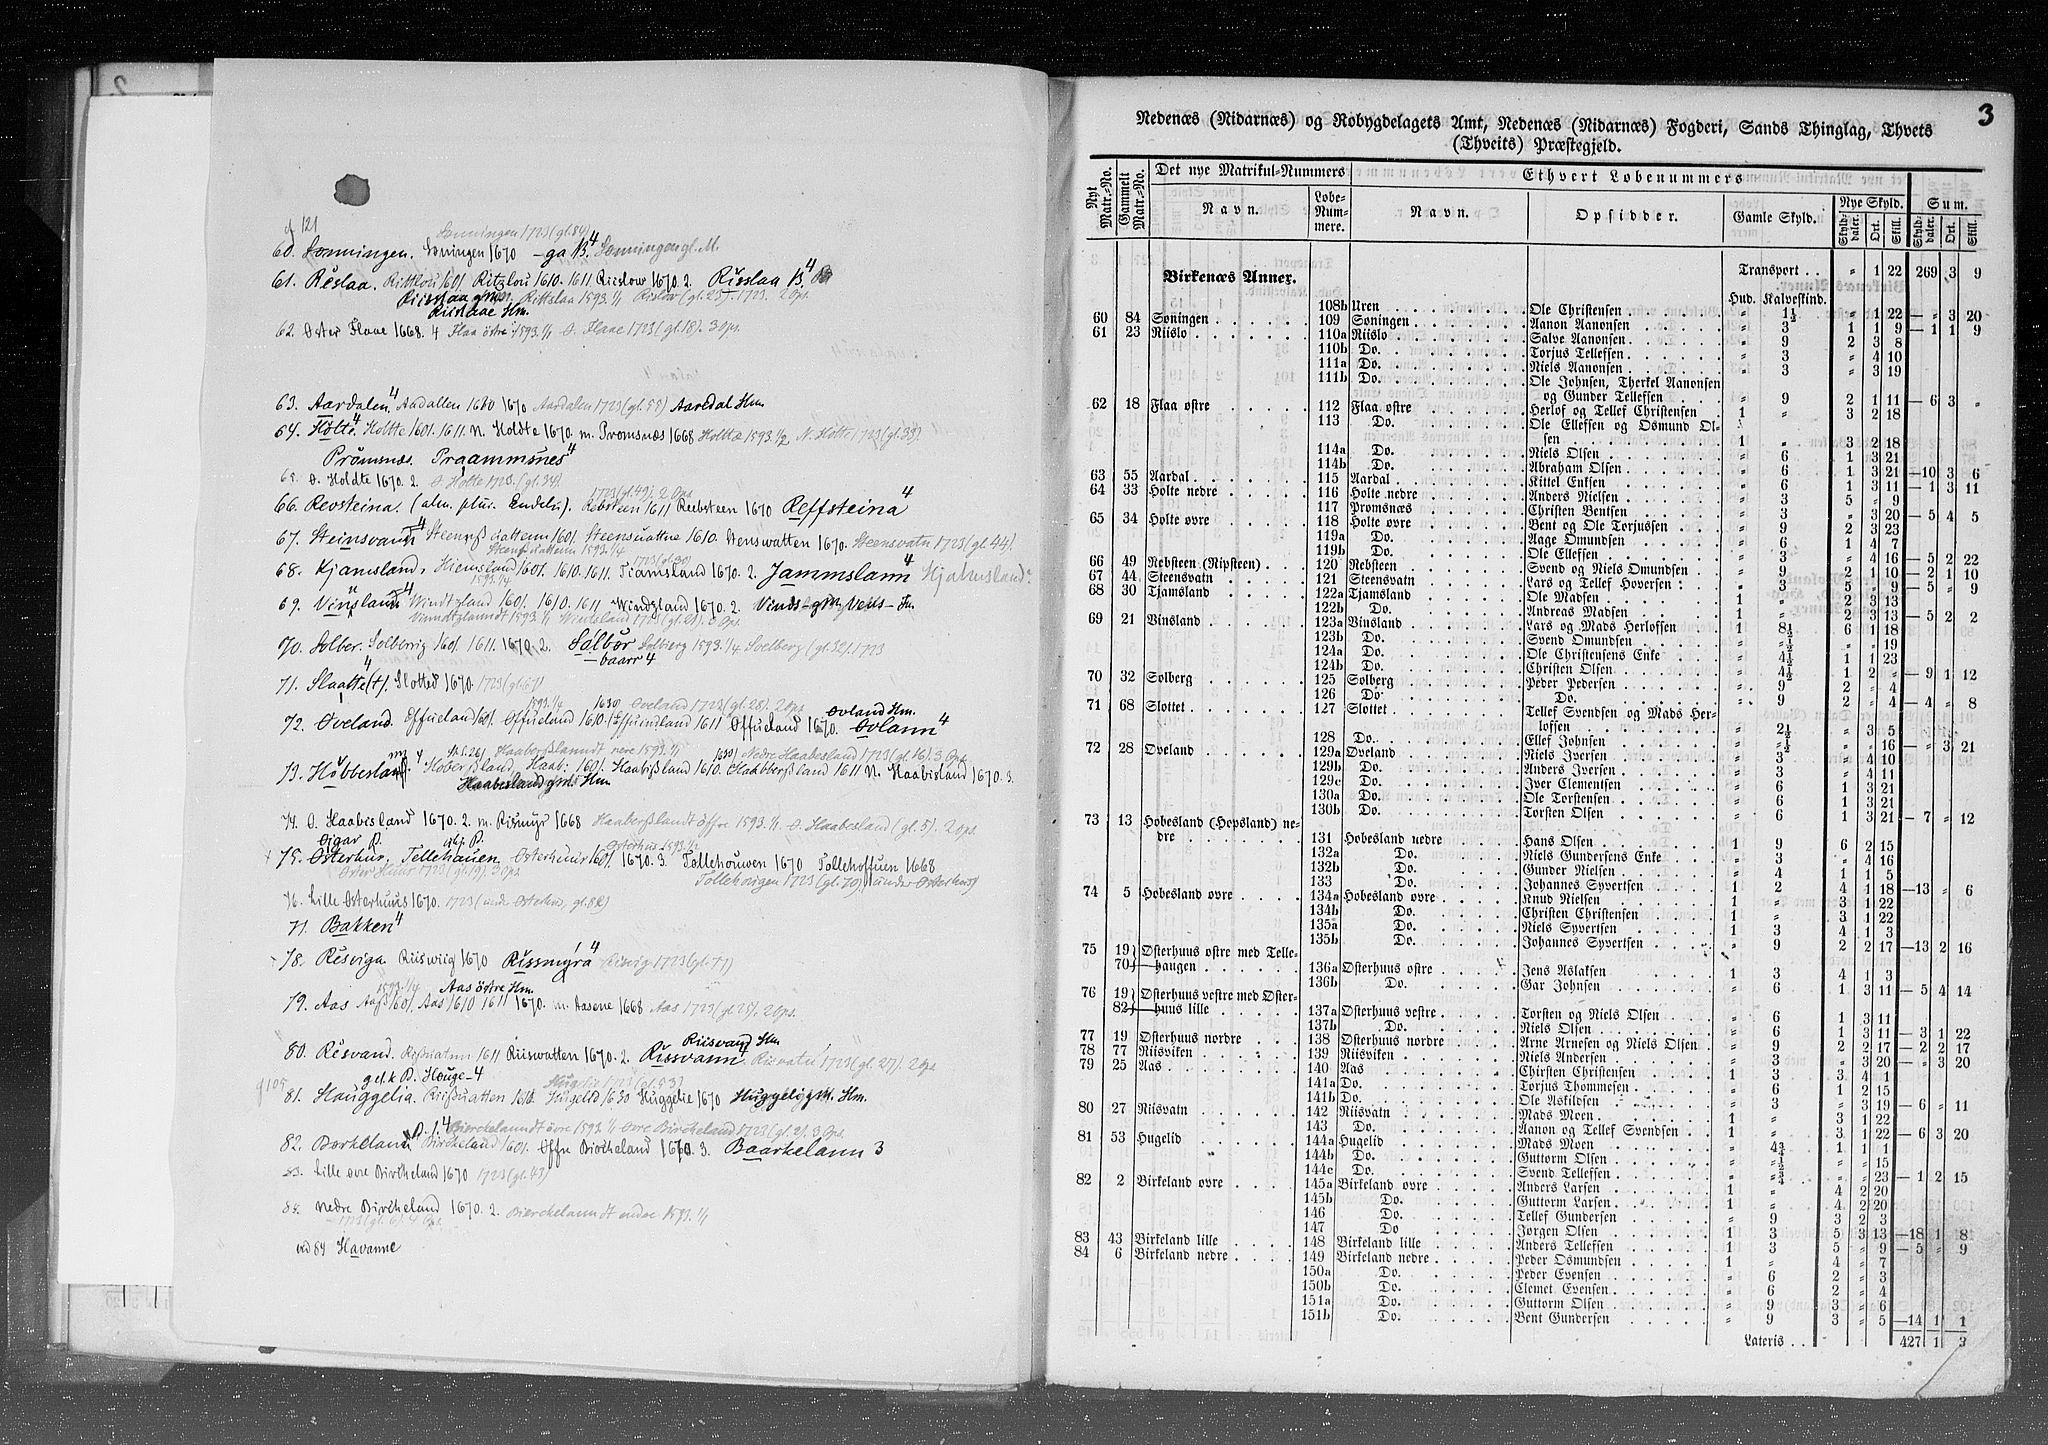 cf 121
Sonningen 1723 (gl. 84)
60. Sonningen. Soningen 1670 -ga B.4 Sonningen gl. M.
61. Reslaa. Rittlou 1601. Ritzlou 1610. 1611 Riislow 1670. 2. Risslaa B.4
Riisslaa gmn. Rittslaa 1593. 1/1 Rislow (gl. 23). 1723. 2 Ops.
Riislaae Hm.
62. Øster Flaae 1668. 4 Flaa östre 1593. 1/1 O. Flaae 1723 (gl. 18). 3 Ops.
63. Aardalen.4 Aadallen 1630 1670 Aardalen 1723 (gl. 55) Aardal Hm.
64. Hölte.4 Holtte 1601. 1611. N. Holdte 1670. m. Promsnæs 1668 Holltte 1593. 1/2 N. Holte 1723 (gl. 33).
Prømsnæs. Praammsnes4
65. O. Holdte 1670. 2. O. Holte 1723. (gl. 34)
1723 (gl. 49). 2 Ops
66. Revsteina. (alm. plur. Endelse). Rebsteen 1611 Reebsteen 1670 Reffsteina4
67. Steinsvann4 1601. 1610. Stenswatten 1670. Steensvatn 1723 (gl. 44).
1593. 1/4 1723 (gl. 30)
68. Kjamsland. Hiemsland 1601. 1610. 1611. Tiamsland 1670. 2. Jammslann4 Hjalmsland
1593. 1/4
69. Vinslann4 Windtzland 1601. 1610. 1611 Windzland 1670. 2. Vinds- gmn Vens- Hm.
1593. 1/1 Vintsland 1723 (gl. 21). 2 Ops.
70. Solber. Solberig 1601. 1611. 1670. 2. Sólbór Solbierg 1593. 1/4 Soelberg (gl. 32). 1723
baarr 4
71. Slaatte(t). Slotted 1670. 1723 (gl. 67)
1593. 1/4 1630 Øveland 1723 (gl. 28). 2 Ops Ovland Hm.
72. Øveland. Effueland 1601. Offueland 1610. 1611 Øffueland 1670. Ovlann4
Haaberßlanndt nere 1593. 1/1 Nedre Haabesland 1723 (gl. 16). 3 Ops
73. Höbbesland Hobersland, Haab: 1601. Haabißland 1610. Haabberßland 1611 N. Haabisland 1670. 3.
Haabesland gmn. Hm.
74. O. Haabesland 1670. 2. m. Rismyr 1668 Haaberßlandt öffre 1593. 1/1 O. Haabesland (gl. 5). 2 Ops.
Osterhus 1593. 1/2
75. Østerhus. Tellehauen. Osterhuus 1601. 1670. 3. Tollehouwen 1670 Tollehoffuen 1668
Øster Huus 1723 (gl. 19). 3 Ops Tollehougen 1723 (gl. 70) (under Østerhus)
76. Lille Østerhuus 1670. 1723 (under Østerhus, gl. 82)
77. Bakken4
78. Resviga Riisviig 1670 Rissmýra4 Riisvig 1723 (gl. 77)
1593. 1/4 Aas östre Hm.
79. Aas Aaß 1601. Aas 1610 1611 1670. m. Aasene 1668 Aas 1723 (gl. 25). 2 Ops.
Riisvand Hm.
80. Resvand. Reßuatnn 1611 Riiswatten 1670. 2. Rissvann4 Riisvatn 1723 (gl. 27). 2 Ops
gef. k B. Houge-4 Hugelie 1723 (gl. 53)
81. Houggelia. Rißuatten 1610. Hugelid 1630 Huggelie 1670 Huggelij gmn. Hm.
Bierckelanndt övre 1593. 1/1 Øvre Birckeland 1723 (gl. 2). 3 Ops.
82. Borkelann4 Birckeland 1601. Offre Birckeland 1670. 3. Baarkelann 3
83. Lille ovre Birckeland 1670 1723 (gl. 43)
84. Nedre Birckeland 1670. 2. Bierckelanndt nedre 1593. 1/1
1723 (gl. 6). 4 Ops.
ved 84 Havanne
3
Nedenæs (Nidarnæs) og Robygdelagets Amt, Nedenæs (Nidarnæs) Fogderi, Sands Thinglag, Thvets
(Thveits) Præstegjeld.
Nyt Matr.-No. Gammelt Matr.-No. Det nye Matrikul-Nummers Ethvert Løbenummers
Navn. Løbe-Num-mere. Navn. Opsidder. Gamle Skyld. Nye Skyld. Sum.
Skylddaler. Ort. Skill. Skylddaler. Ort. Skill.
Birkenæs Annex. Transport . . „ 1 22 269 3 9
Hud. Kalveskind.
108b Uren Ole Christensen „ 1½ „ 1 22 — „ 3 20
60 84 Søningen 109 Søningen Aanon Aanonsen „ 3 1 1 9 — 1 1 9
61 23 Riislo 110a Riislo Salve Aanonsen „ 9 2 3 8
110b Do. Torjus Tellefsen „ 3 „ 4 10
111a Do. Niels Aanonsen „ 3 „ 3 19
111b Do. Ole Johnsen, Therkel Aanonsen
og Gunder Tellefsen „ 9 2 1 11 — 6 3 „
62 18 Flaa østre 112 Flaa østre Herlof og Tellef Christensen 1 „ 3 2 18
113 Do. Ole Ellefsen og Osmund Ol-
sen 1 „ 3 2 18
114a Do. Niels Olsen „ 6 1 3 21
114b Do. Abraham Olsen „ 6 1 3 21 — 10 3 6
63 55 Aardal 115 Aardal Kittel Enksen „ 6 1 3 11 — 1 3 11
64 33 Holte nedre 116 Holte nedre Anders Nielsen 1 „ 5 „ 9
117 Promsnæs Christen Bentsen „ „ „ 3 20 — 5 4 5
65 34 Holte øvre 118 Holte øvre Bent og Ole Torjussen „ 9 2 3 23
119a Do. Aage Omundsen „ 6 1 4 7
119b Do. Ole Ellefsen „ 3 „ 4 16 — 5 2 22
66 49 Rebsteen (Ripsteen) 120 Rebsteen Svend og Niels Omundsen „ 9 2 1 10 — 2 1 10
67 44 Steensvatn 121 Steensvatn Lars og Tellef Hoversen 1 3 5 „ 9 — 5 „ 9
68 30 Tjamsland 122a Tjamsland Ole Madsen 1 „ 2 3 13
122b Do. Andreas Madsen 1 „ 2 3 13 — 5 2 2
69 21 Vinsland 123a Vinsland Lars og Mads Herlofsen 1 8½ 6 1 18
123b Do. Svend Omundsen „ ½ „ „ 19
124a Do. Ole Christensens Enke „ 4½ 1 1 23
124b Do. Christen Olsen „ 4½ 1 2 „ — 9 1 12
70 32 Solberg 125 Solberg Peder Pedersen „ 9 2 „ 4
126 Do Do. „ 9 2 „ 4 — 4 „ 8
71 68 Slottet 127 Slottet Tellef Svendsen og Mads Her-
lofsen „ 2½ „ 3 5
128 Do. Ellef Johnsen „ ½ „ „ 16 — „ 3 21
72 28 Øveland 129a Øveland Niels Jversen „ 3 „ 4 10
129b Do. Anders Jversen „ 3 „ 4 11
129c Do. Jver Clementsen „ 6 1 3 21
130a Do. Ole Torstensen „ 6 1 3 21
130b Do. Torsten Olsen „ 6 1 3 21 — 7 „ 12
73 13 Hobesland (Hopsland) ne-
dre 131 Hobesland nedre Hans Olsen 1 9 6 2 15
132a Do. Niels Gundersens Enke „ 3 „ 4 16
132b Do. Gunder Nielsen „ 4 1 1 5
133 Do. Johannes Syvertsen 1 2 4 1 18 — 13 „ 6
74 5 Hobesland øvre 134a Hobesland øvre Knud Nielsen 1 „ 3 1 22
134b Do. Christen Christensen 1 „ 3 1 22
135a Do. Niels Syvertsen 1 3 4 1 3
135b Do. Johannes Syvertsen „ 9 2 2 17 — 13 2 16
75 19 Østerhuus østre med Telle-
70 haugen 136a Østerhuus østre Jens Aslaksen 1 3 4 1 3
136b Do. Gar Johnsen „ 6 1 3 11 — 5 4 14
76 19 Østerhuus vestre med Øster-
82 huus lille 137a Østerhuus vestre Torsten og Niels Olsen „ 6 1 3 11
137b Do. Niels Olsen „ 6 1 3 11 — 3 1 22
77 19 Østerhuus nordre 138 Østerhuus nordre Arne Arnesen og Niels Olsen „ 9 2 2 17 — 2 2 17
78 77 Riisviken 139 Riisviken Niels Andersen „ 3 „ 3 20 — „ 3 20
79 25 Aas 140 Aas Chirsten Christensen 1 „ 3 4 1
141a Do. Torjus Thommesen „ 6 1 2 15
141b Do. Ole Askildsen „ 3 „ 3 19 — 6 „ 11
80 27 Riisvatn 142 Riisvatn Mads Moen 1 „ 3 1 22
143 Do. Aanon og Tellef Svendsen 1 „ 3 1 22 — 6 3 20
81 53 Hugelid 144a Hugelid Mads Moen „ 4¾ 1 1 1
144b Do. Guttorm Olsen „ ½ „ „ 15
144c Do. Svend Tellefsen „ ¾ „ „ 23 — 1 2 15
82 2 Birkeland øvre 145a Birkeland øvre Anders Larsen 1 „ 4 2 20
145b Do. Guttorm Larsen 1 „ 4 2 20
146 Do. Tellef Gundersen „ 9 3 2 3
147 Do. Jørgen Olsen 1 3 5 3 13 — 18 1 8
83 43 Birkeland lille 148 Birkeland lille Anders Tellefsen 1 3 5 „ 9 — 5 „ 9
84 6 Birkeland nedre 149 Birkeland nedre Peder Osmundsen 1 „ 4 „ 7
150a Do. Peder Evensen „ 6 2 „ 3
150b Do. Clemet Evensen „ 6 2 „ 4
151a Do. Guttorm Olsen „ 9 3 „ 6
151b Do. Bent Gundersen „ 9 3 „ 5 — 14 1 1
Lateris . . 427 1 3